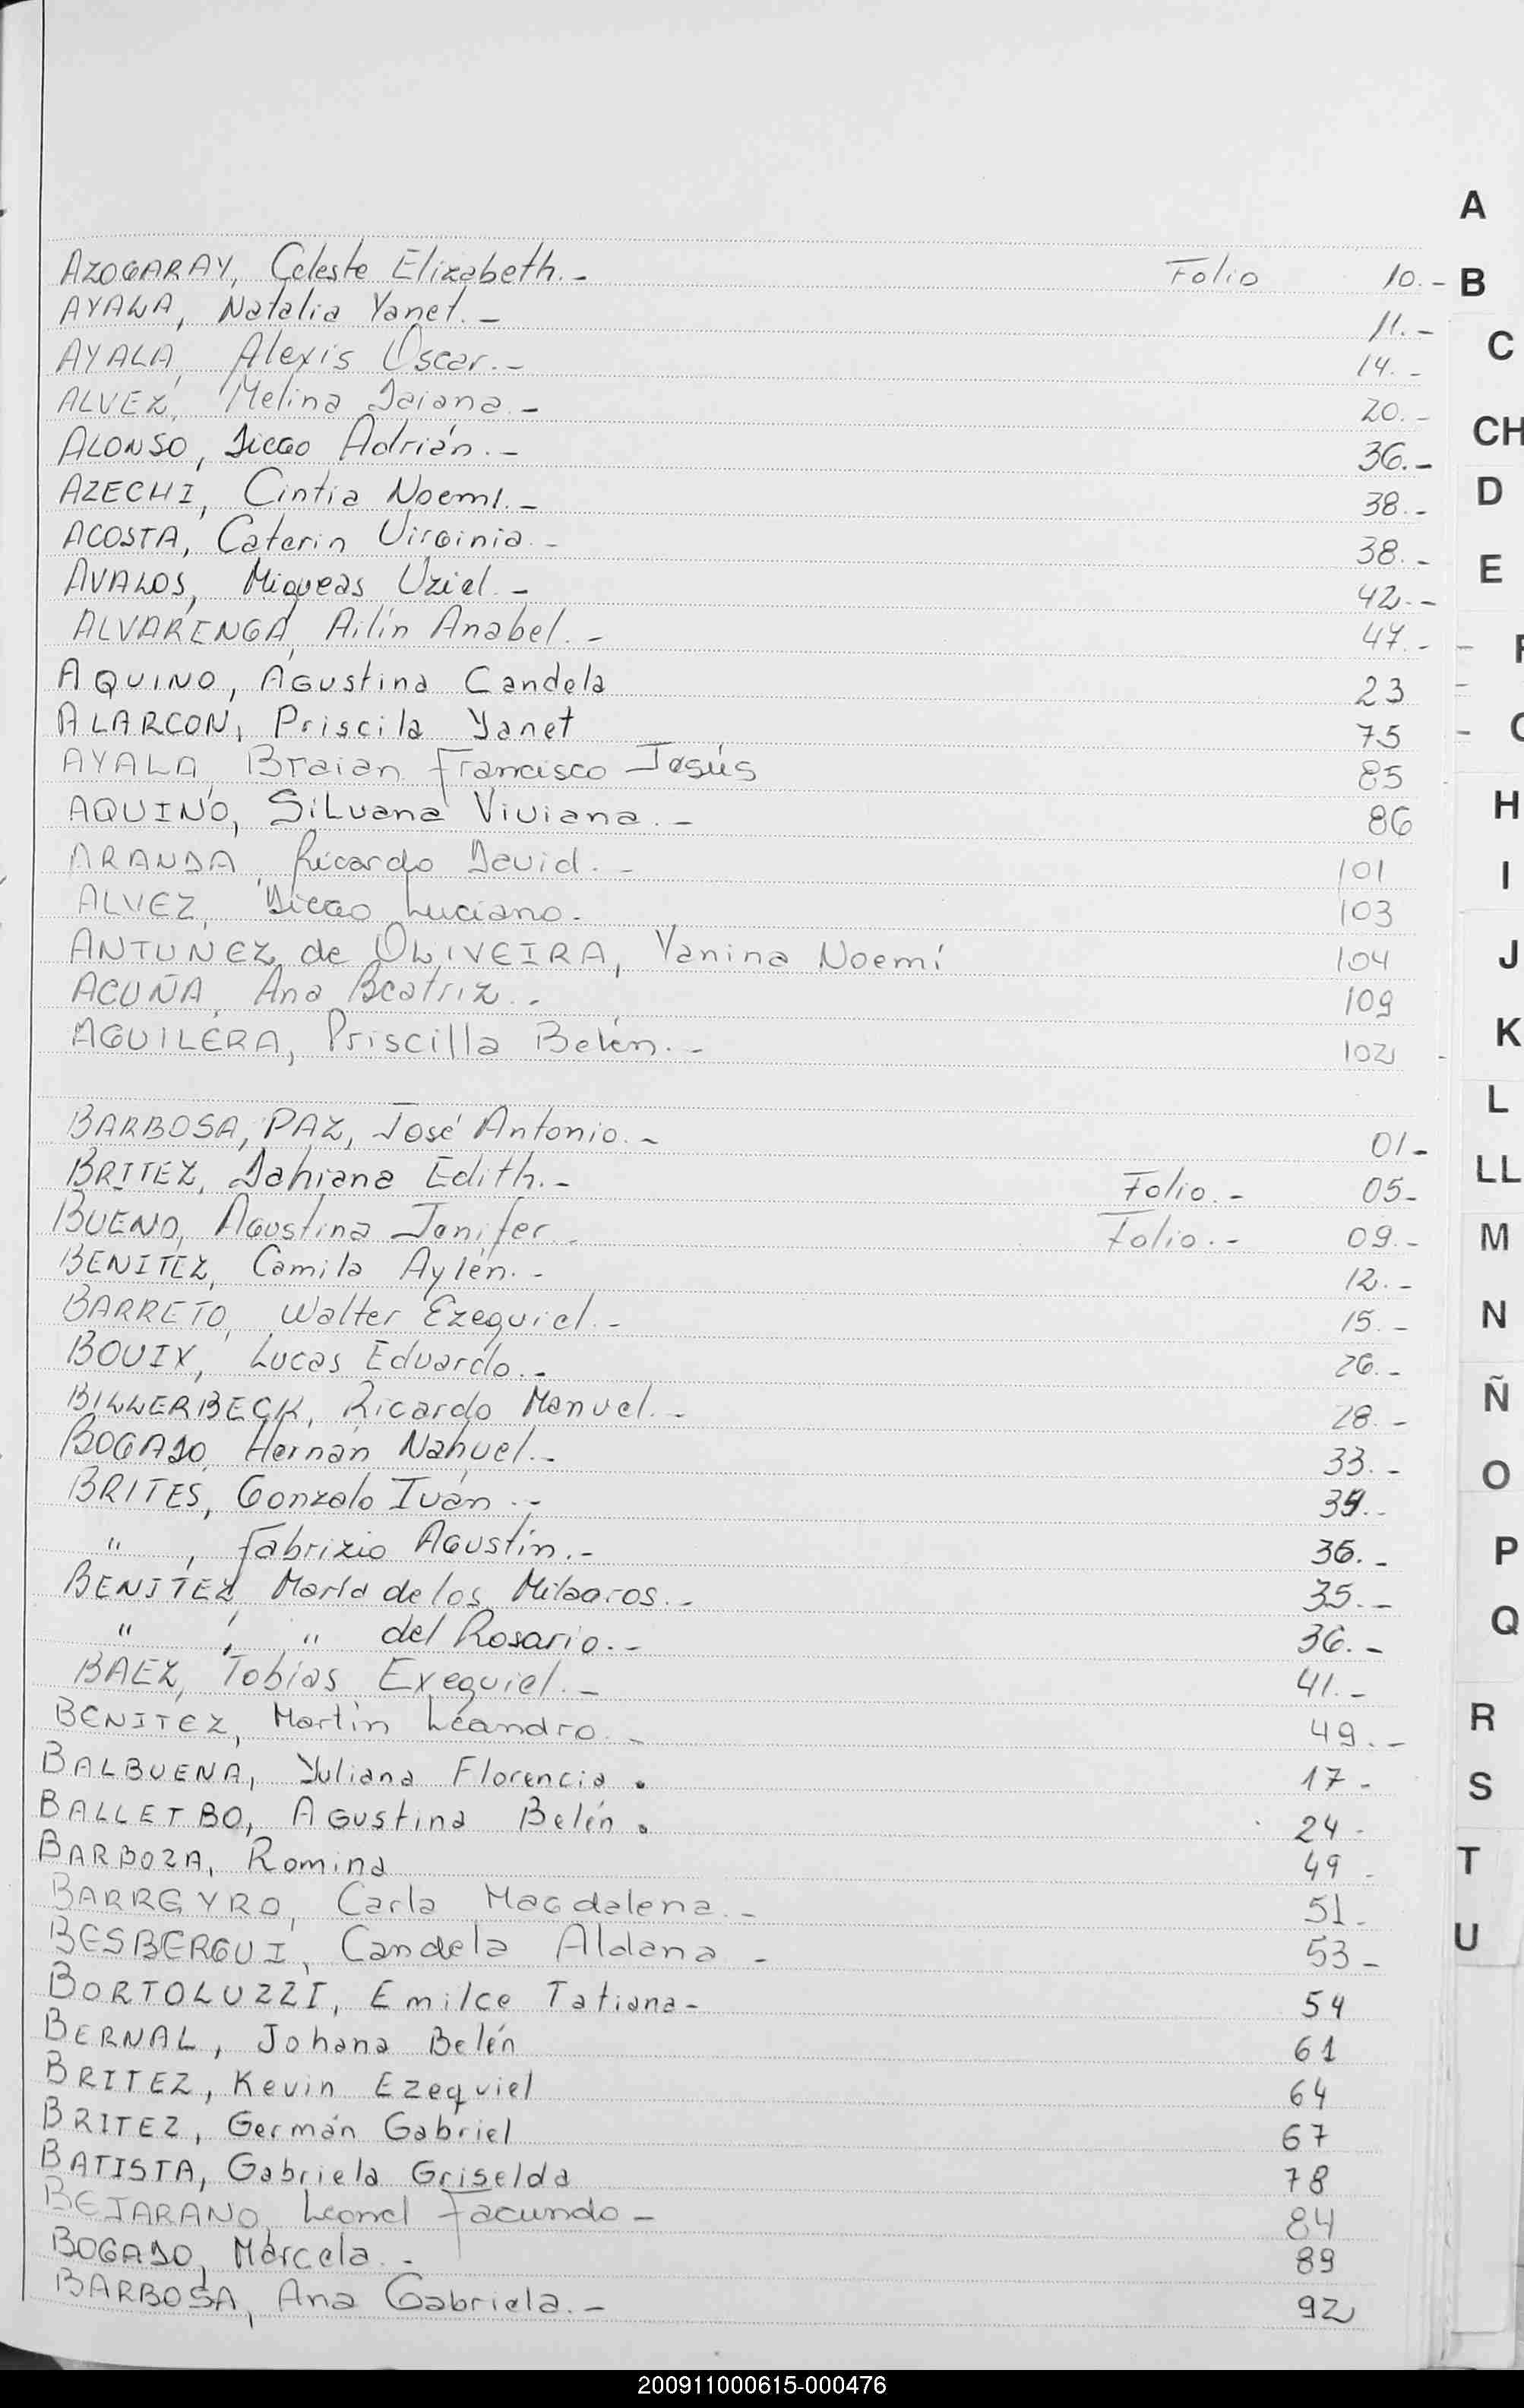 AZOGARAY, Celeste Elizabeth.- Folio 10.-
AYALA, Natalia Yanet.- 11.-
AYALA, Alexis Oscar.- 14.-
ALVEZ, Melina Daiana.- 20.-
ALONSO, Diego Adrián.- 36.-
AZECHI, Cintia Noemí.- 38.-
ACOSTA, Caterin Virginia.- 38.-
AVALOS, Miqueas Uziel.- 42.-
ALVARENGA, Ailín Anabel.- 47.-
AQUINO, Agustina Candela 23
ALARCON, Priscila Yanet 75
AYALA, Braian Francisco Jesús 85
AQUINO, Silvana Viviana.- 86
ARANDA, Ricardo David.- 101
ALVEZ, Diego Luciano.- 103
ANTUÑEZ de OLIVEIRA, Yanina Noemí 104
ACUÑA, Ana Beatriz.- 109
AGUILERA, Priscilla Belén.- 102
BARBOSA, PAZ, José Antonio.- 01-
BRITEZ, Dahiana Edith.- Folio.- 05-
BUENO, Agustina Jenifer.- Folio.- 09.-
BENITEZ, Camila Aylén.- 12.-
BARRETO, Walter Ezequiel.- 15.-
BOUIX, Lucas Eduardo.- 26.-
BILLERBECK, Ricardo Manuel.- 28.-
BOGADO, Hernán Nahuel.- 33.-
BRITES, Gonzalo Iván.-
" , Fabrizio Agustín.- 36.-
BENITEZ, María de los Milagros.- 35.-
" , " del Rosario.- 36.-
BAEZ, Tobías Exequiel.- 41.-
BENITEZ, Martín Leandro.- 49.-
BALBUENA, Yuliana Florencia. 17-
BALLETBO, Agustina Belén. 24-
BARBOZA, Romina 49-
BARRGYRO, Carla Magdalena.- 51-
BESBERGUI, Candela Aldana - 53-
BORTOLUZZI, Emilce Tatiana- 54
BERNAL, Johana Belén 61
BRITEZ, Kevin Ezequiel 64
BRITEZ, Germán Gabriel 67
BATISTA, Gabriela Griselda 78
BEJARANO, Leonel Facundo- 84
BOGADO, Marcela.- 89
BARBOSA, Ana Gabriela.- 92
A
B
C
CH
D
E
H
I
J
K
L
LL
M
N
Ñ
O
P
Q
R
S
T
U
200911000615-000476